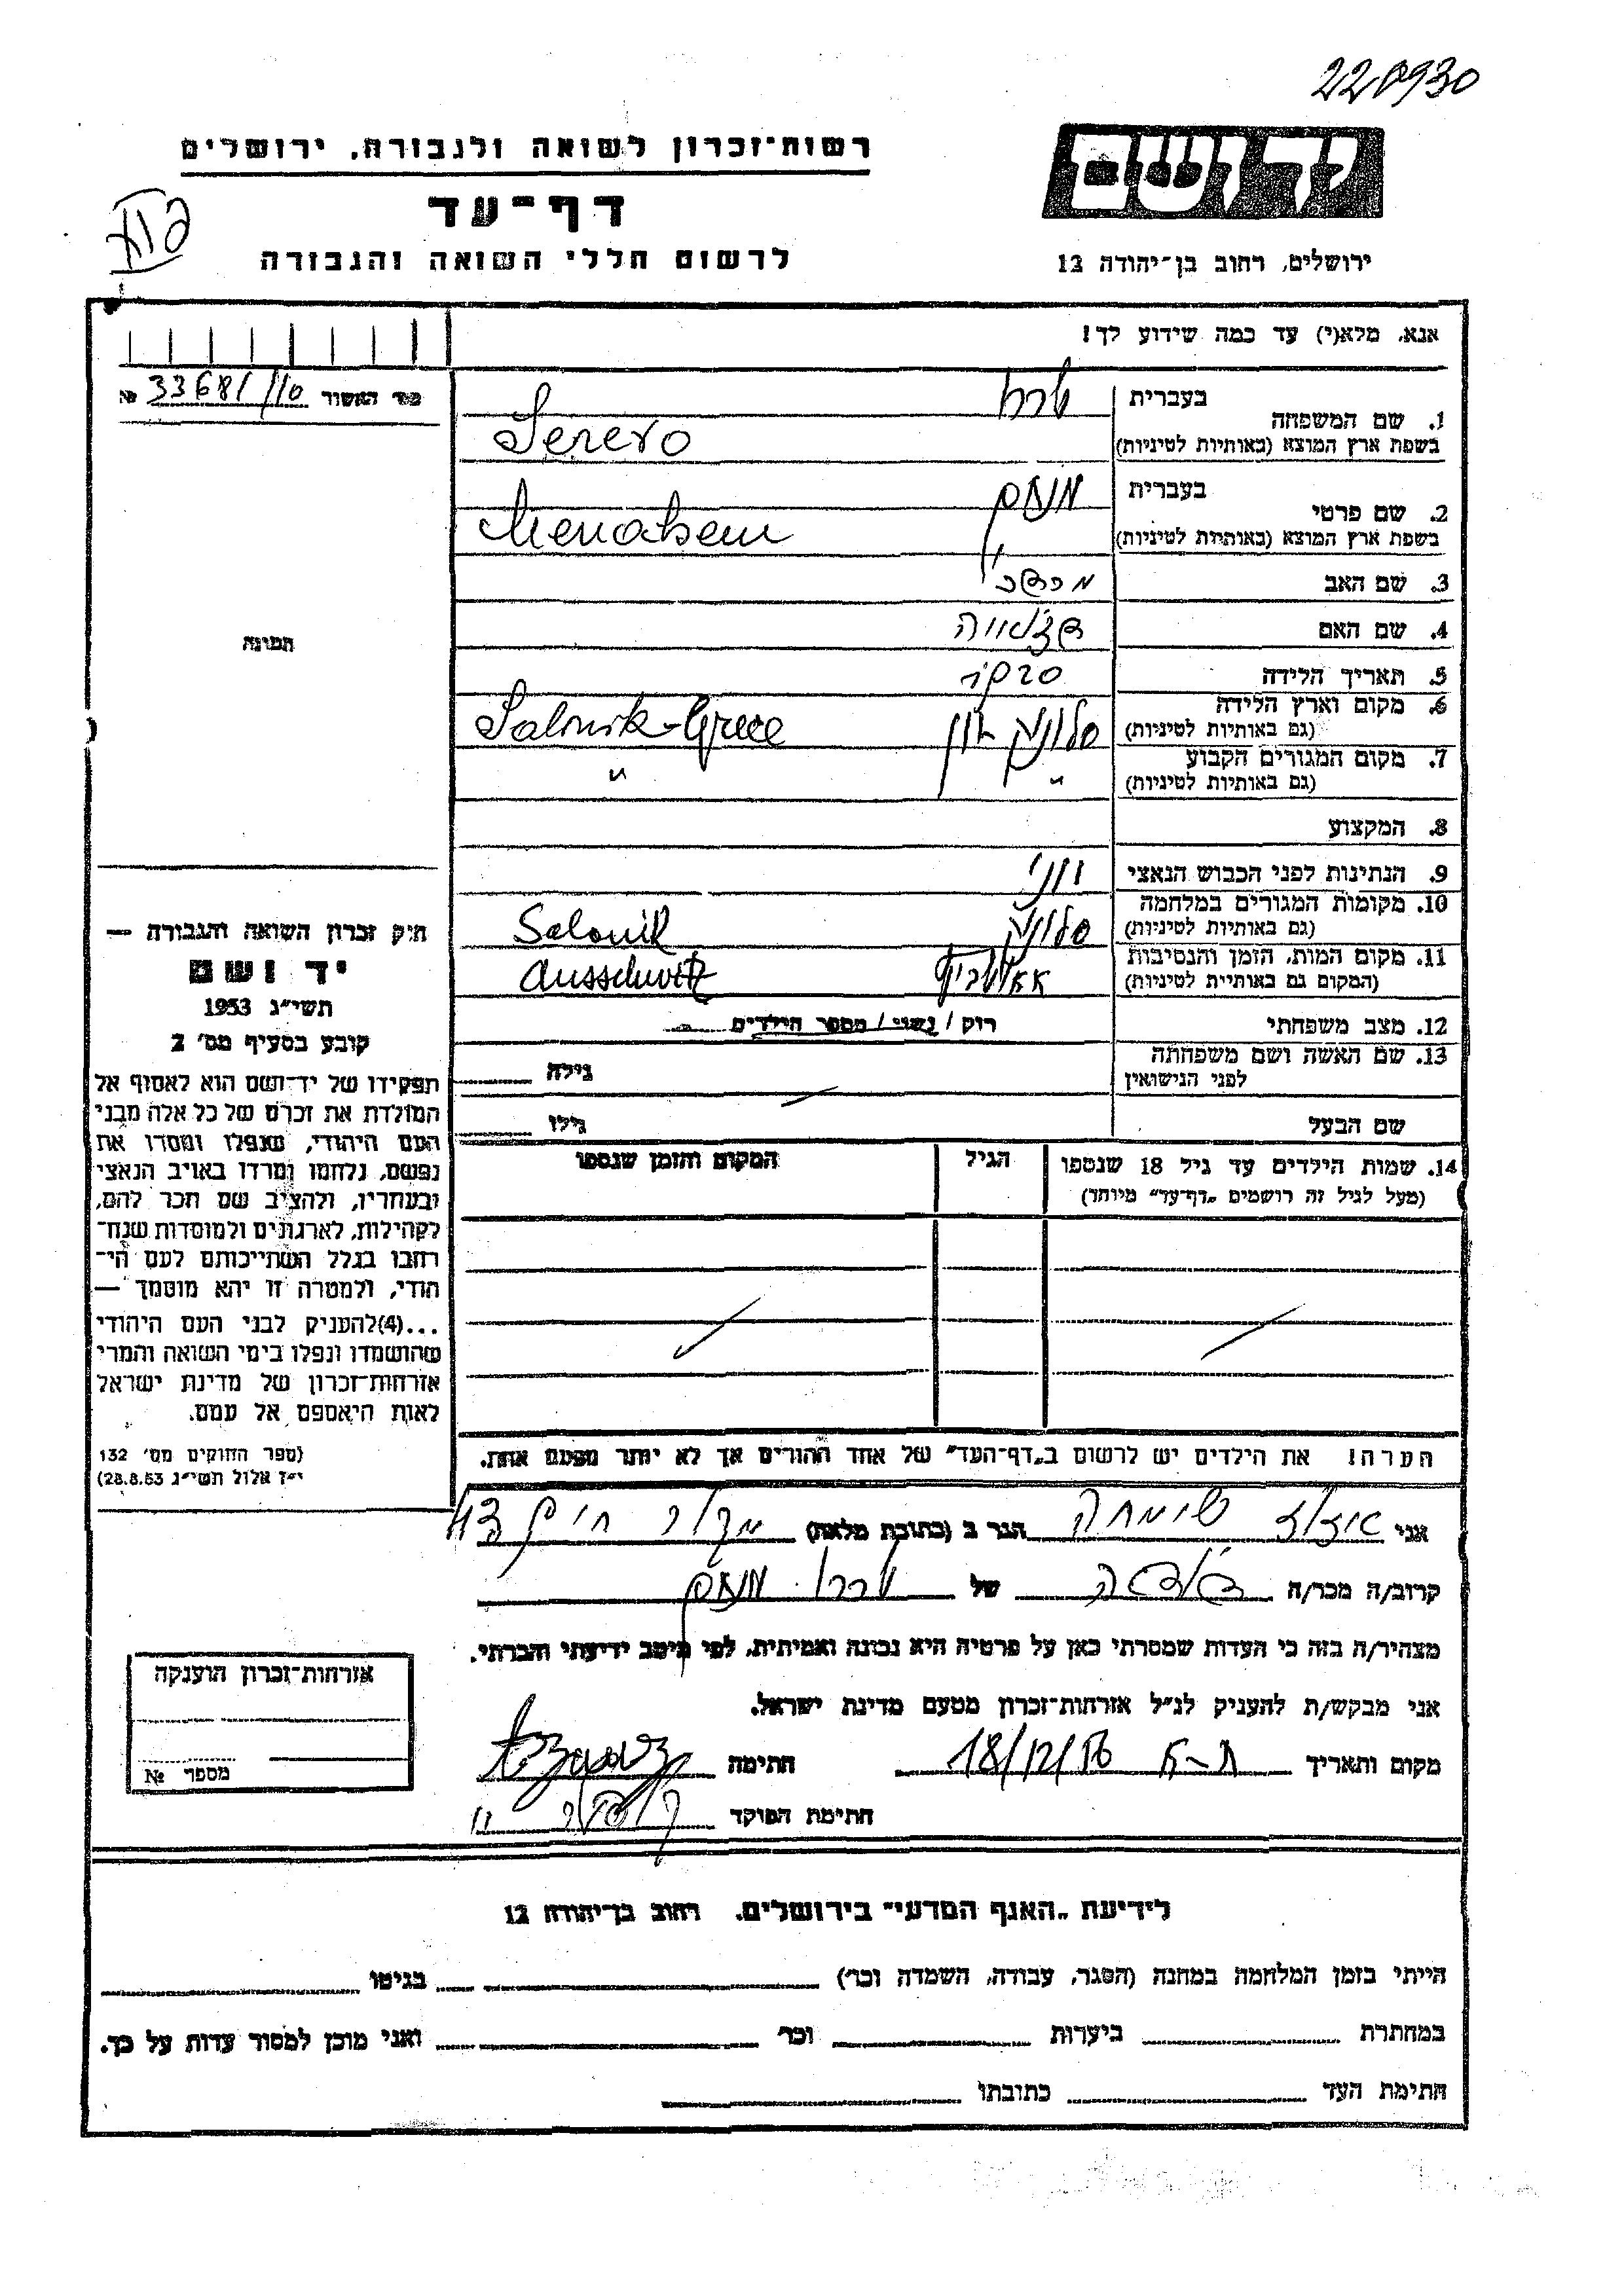 220930
רשות־זכרון לשואה ולגבורה, ירושלים
דף־עד
לרשום חללי השואה והגבורה
ידושם
ירושלים, רחוב בן־יהודה 12
אנא, מלא(י) עד כמה שידוע לך!
מס׳ האשור № 33681/110
1. שם המשפחה
בעברית
בשפת ארץ המוצא (באותיות לטיניות) Serero
2. שם פרטי
בעברית מנחם
בשפת ארץ המוצא (באותיות לטיניות) Menahem
3. שם האב מרדכי
4. שם האם
5. תאריך הלידה
6. מקום וארץ הלידה סלוניק יון Salonik-Grece
(גם באותיות לטיניות)
7. מקום המגורים הקבוע " "
(גם באותיות לטיניות)
8. המקצוע
9. הנתינות לפני הכבוש הנאצי יוני
10. מקומות המגורים במלחמה סלוניק Salonik
(גם באותיות לטיניות)
11. מקום המות, הזמן והנסיבות Ausschwitz
(המקום גם באותיות לטיניות)
12. מצב משפחתי רוק / נשוי / מספר הילדים
13. שם האשה ושם משפחתה
לפני הנישואין
גילה
שם הבעל גילו
14. שמות הילדים עד גיל 18 שנספו
(מעל לגיל זה רושמים „דף־עד״ מיוחד)
הגיל
המקום והזמן שנספו
הערה! את הילדים יש לרשום ב„דף־העד״ של אחד ההורים אך לא יותר מפעם אחת.
תמונה
חוק זכרון השואה והגבורה —
יד ושם
תשי״ג 1953
קובע בסעיף מס׳ 2
תפקידו של יד־ושם הוא לאסוף אל
המולדת את זכרם של כל אלה מבני
העם היהודי, שנפלו ומסרו את
נפשם, נלחמו ומרדו באויב הנאצי
ובעוזריו, ולהציב שם וזכר להם,
לקהילות, לארגונים ולמוסדות שנח־
רבו בגלל השתייכותם לעם הי־
הודי, ולמטרה זו יהא מוסמך —
...(4)להעניק לבני העם היהודי
שהושמדו ונפלו בימי השואה והמרי
אזרחות־זכרון של מדינת ישראל
לאות היאספם אל עמם.
(ספר החוקים מס׳ 132
י״ז אלול תשי״ג 28.8.53)
אני שימחה הגר ב (כתובת מלאה)
קרוב/ה מכר/ה של מנחם
מצהיר/ה בזה כי העדות שמסרתי כאן על פרטיה היא נכונה ואמיתית, לפי מיטב ידיעתי והכרתי.
אני מבקש/ת להעניק לנ״ל אזרחות־זכרון מטעם מדינת ישראל.
מקום ותאריך ת-א 18/12/56 חתימה
חתימת הפוקד
אזרחות־זכרון הוענקה
מספר №
לידיעת „האגף המדעי״ בירושלים. רחוב בן־יהודה 12
הייתי בזמן המלחמה במחנה (הסגר, עבודה, השמדה וכו׳) בגיטו
במחתרת ביערות וכו׳ ואני מוכן למסור עדות על כך.
חתימת העד כתובתו